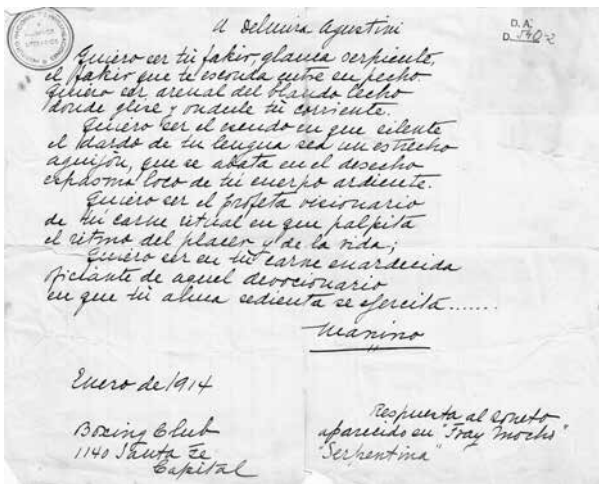 A Delmira Agustini
D. A.
D. 540-2
Quiero ser tu fakir, glauca serpiente,
el fakir que te esconda entre su pecho
quiero ser arenal del blando lecho
donde glise y ondule tu corriente.
Quiero ser el escudo en que silente
el dardo de tu lengua sea un estrecho
aguijón, que se abata en el desecho
espasmo loco de tu cuerpo ardiente.
Quiero ser el profeta visionario
de tu carne ritual en que palpita
el ritmo del placer y de la vida;
Quiero ser en tu carne enardecida
oficiante de aquel devocionario
en que tu alma sedienta se ejercita.......
Manino
Enero de 1914
Boxing Club
1140 Santa Fe
Capital
Respuesta al soneto
aparecido en "Fray Mocho"
"Serpentina"